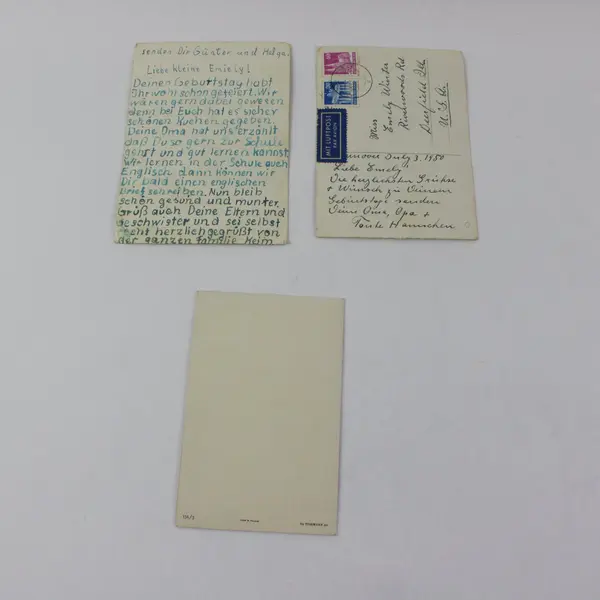 senden Dir Günter und Helga.
Liebe kleine Emiely!
Deinen Geburtstag habt
Ihr wohl schön gefeiert. Wir
wären gern dabei gewesen
denn bei Euch hat es sicher
schönen Kuchen gegeben.
Deine Oma hat uns erzählt
daß Du so gern zur Schule
gehst und gut lernen kannst.
Wir lernen in der Schule auch
Englisch dann können wir
Dir bald einen englischen
Brief schreiben. Nun bleib
schön gesund und munter.
Grüß auch Deine Eltern und
Geschwister und sei selbst
recht herzlich gegrüßt von
der ganzen Familie Keim
MIT LUFTPOST
PAR AVION
Miss
Emely Winter
Riverwoods Rd
Deerfield Ill.
U.S.A.
July 3. 1950
Liebe Emely
Die herzlichsten Grüße
+ Wünsch zu Deinem
Geburtstage senden
Deine Oma, Opa +
Tante Hannchen